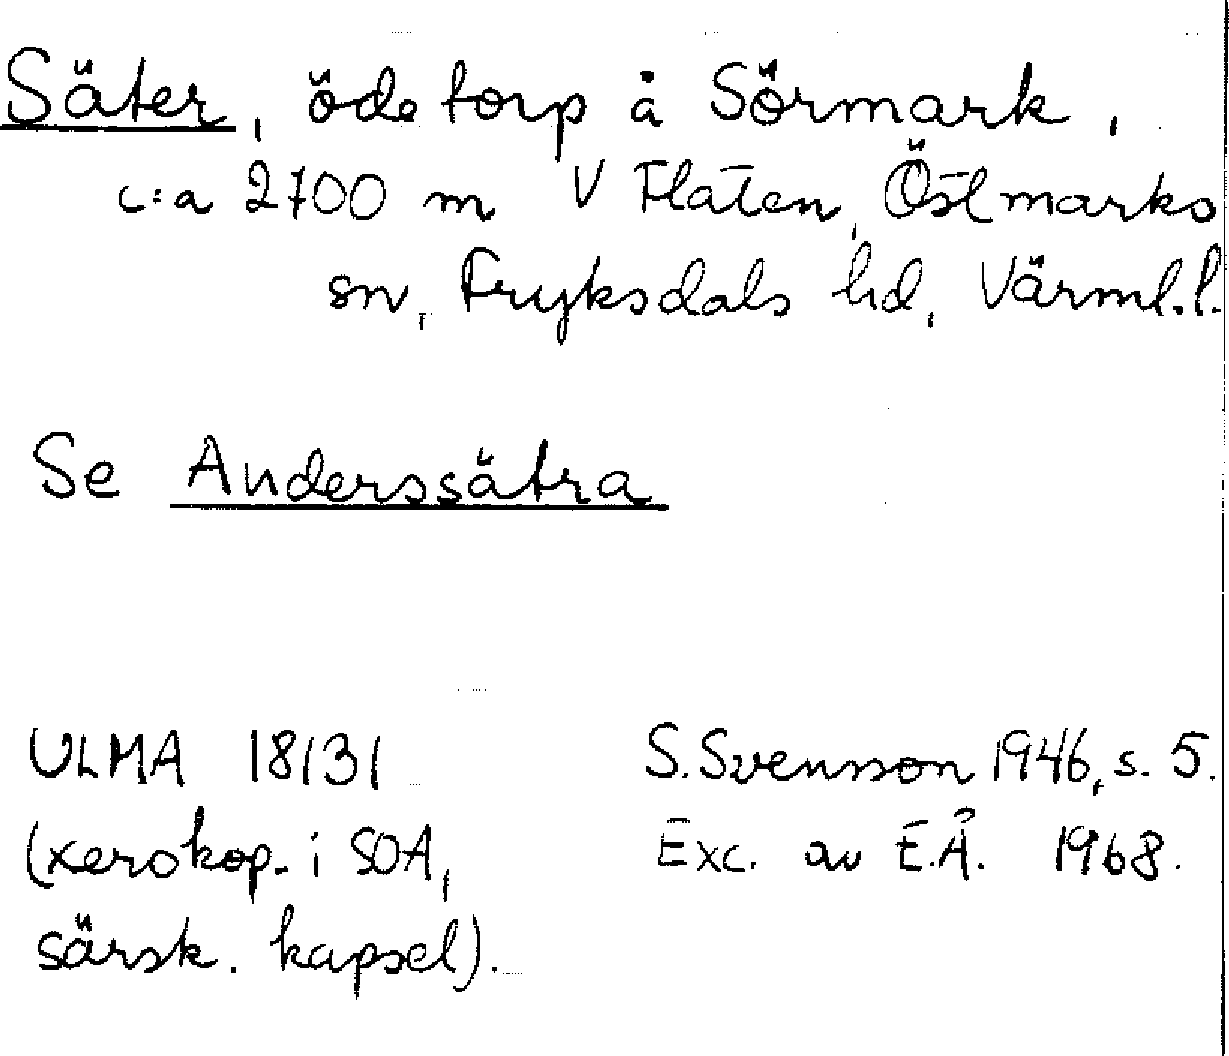 Säter, öde torp å Sörmark,
c:a 2700 m V Flaten, Östmarks
sn, Fryksdals hd, Värml.l.
Se Anderssätra
ULMA 18131 S. Svensson 1946, s. 5.
(xerokop. i SOA, Exc. av E.Å. 1968.
särsk. kapsel).